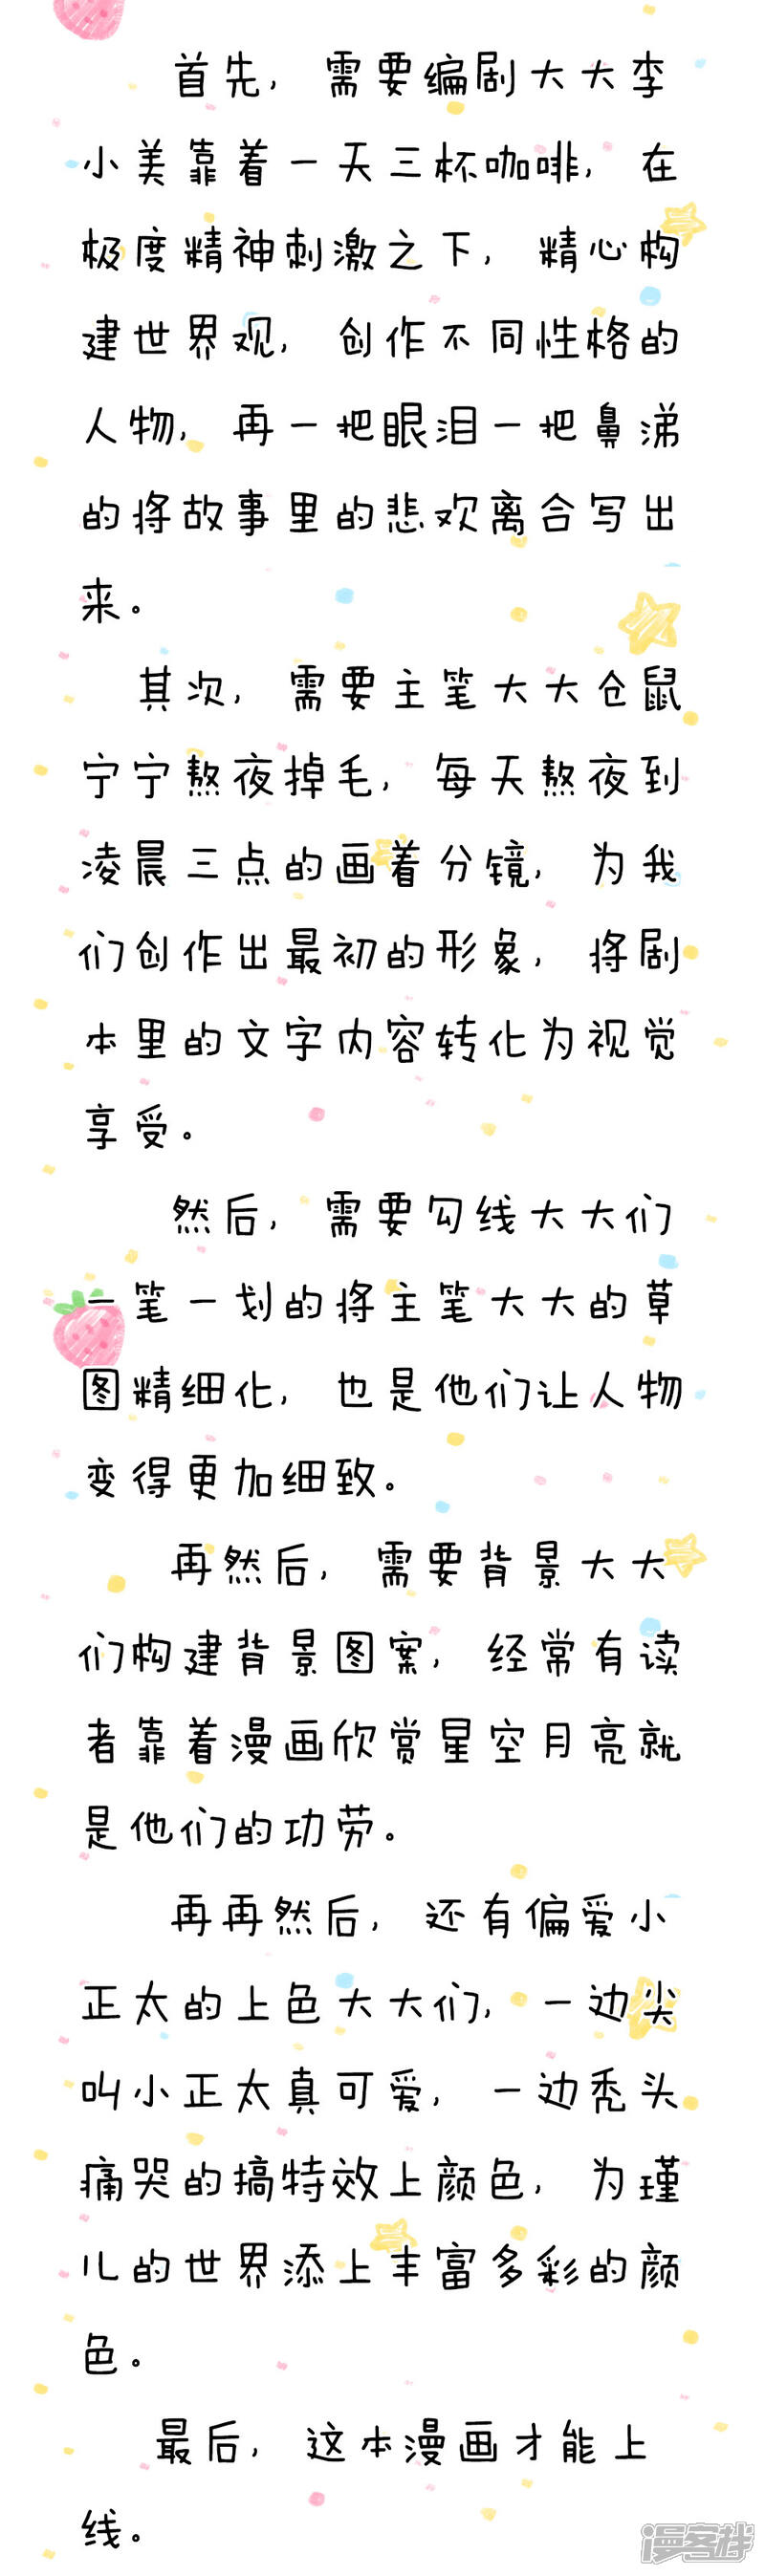 首先，需要编剧大大李
小美靠着一天三杯咖啡，在
极度精神刺激之下，精心构
建世界观，创作不同性格的
人物，再一把眼泪一把鼻涕
的将故事里的悲欢离合写出
来。
其次，需要主笔大大仓鼠
宁宁熬夜掉毛，每天熬夜到
凌晨三点的画着分镜，为我
们创作出最初的形象，将剧
本里的文字内容转化为视觉
享受。
然后，需要勾线大大们
一笔一划的将主笔大大的草
图精细化，也是他们让人物
变得更加细致。
再然后，需要背景大大
们构建背景图案，经常有读
者靠着漫画欣赏星空月亮就
是他们的功劳。
再再然后，还有偏爱小
正太的上色大大们，一边尖
叫小正太真可爱，一边秃头
痛哭的搞特效上颜色，为瑾
儿的世界添上丰富多彩的颜
色。
最后，这本漫画才能上
线。
漫客栈